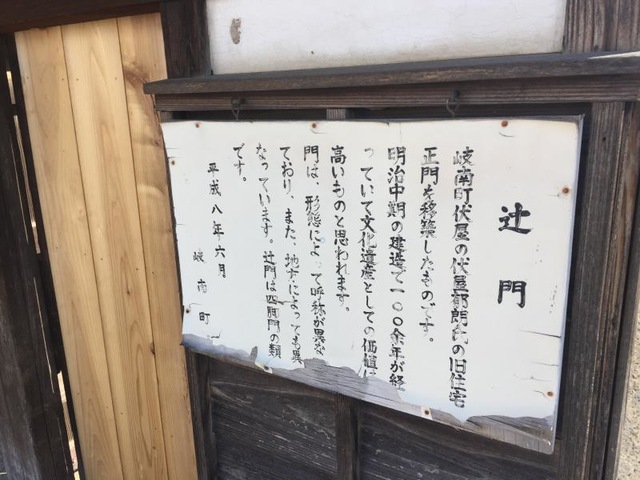 辻門
岐南町伏屋の伏屋郁朗氏の旧住宅
正門を移築したものです。
明治中期の建造で一〇〇余年が経
っていて文化遺産としての価値は
高いものと思われます。
門は、形態によって呼称が異な
ており、また、地方によっても異
なっています。辻門は四脚門の類
です。
平成八年六月
岐南町